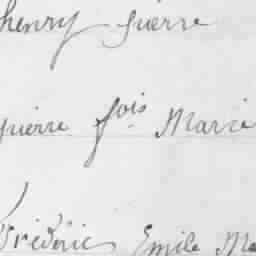 henry pierre
pierre fois Marie
Frédéric Emile Ma